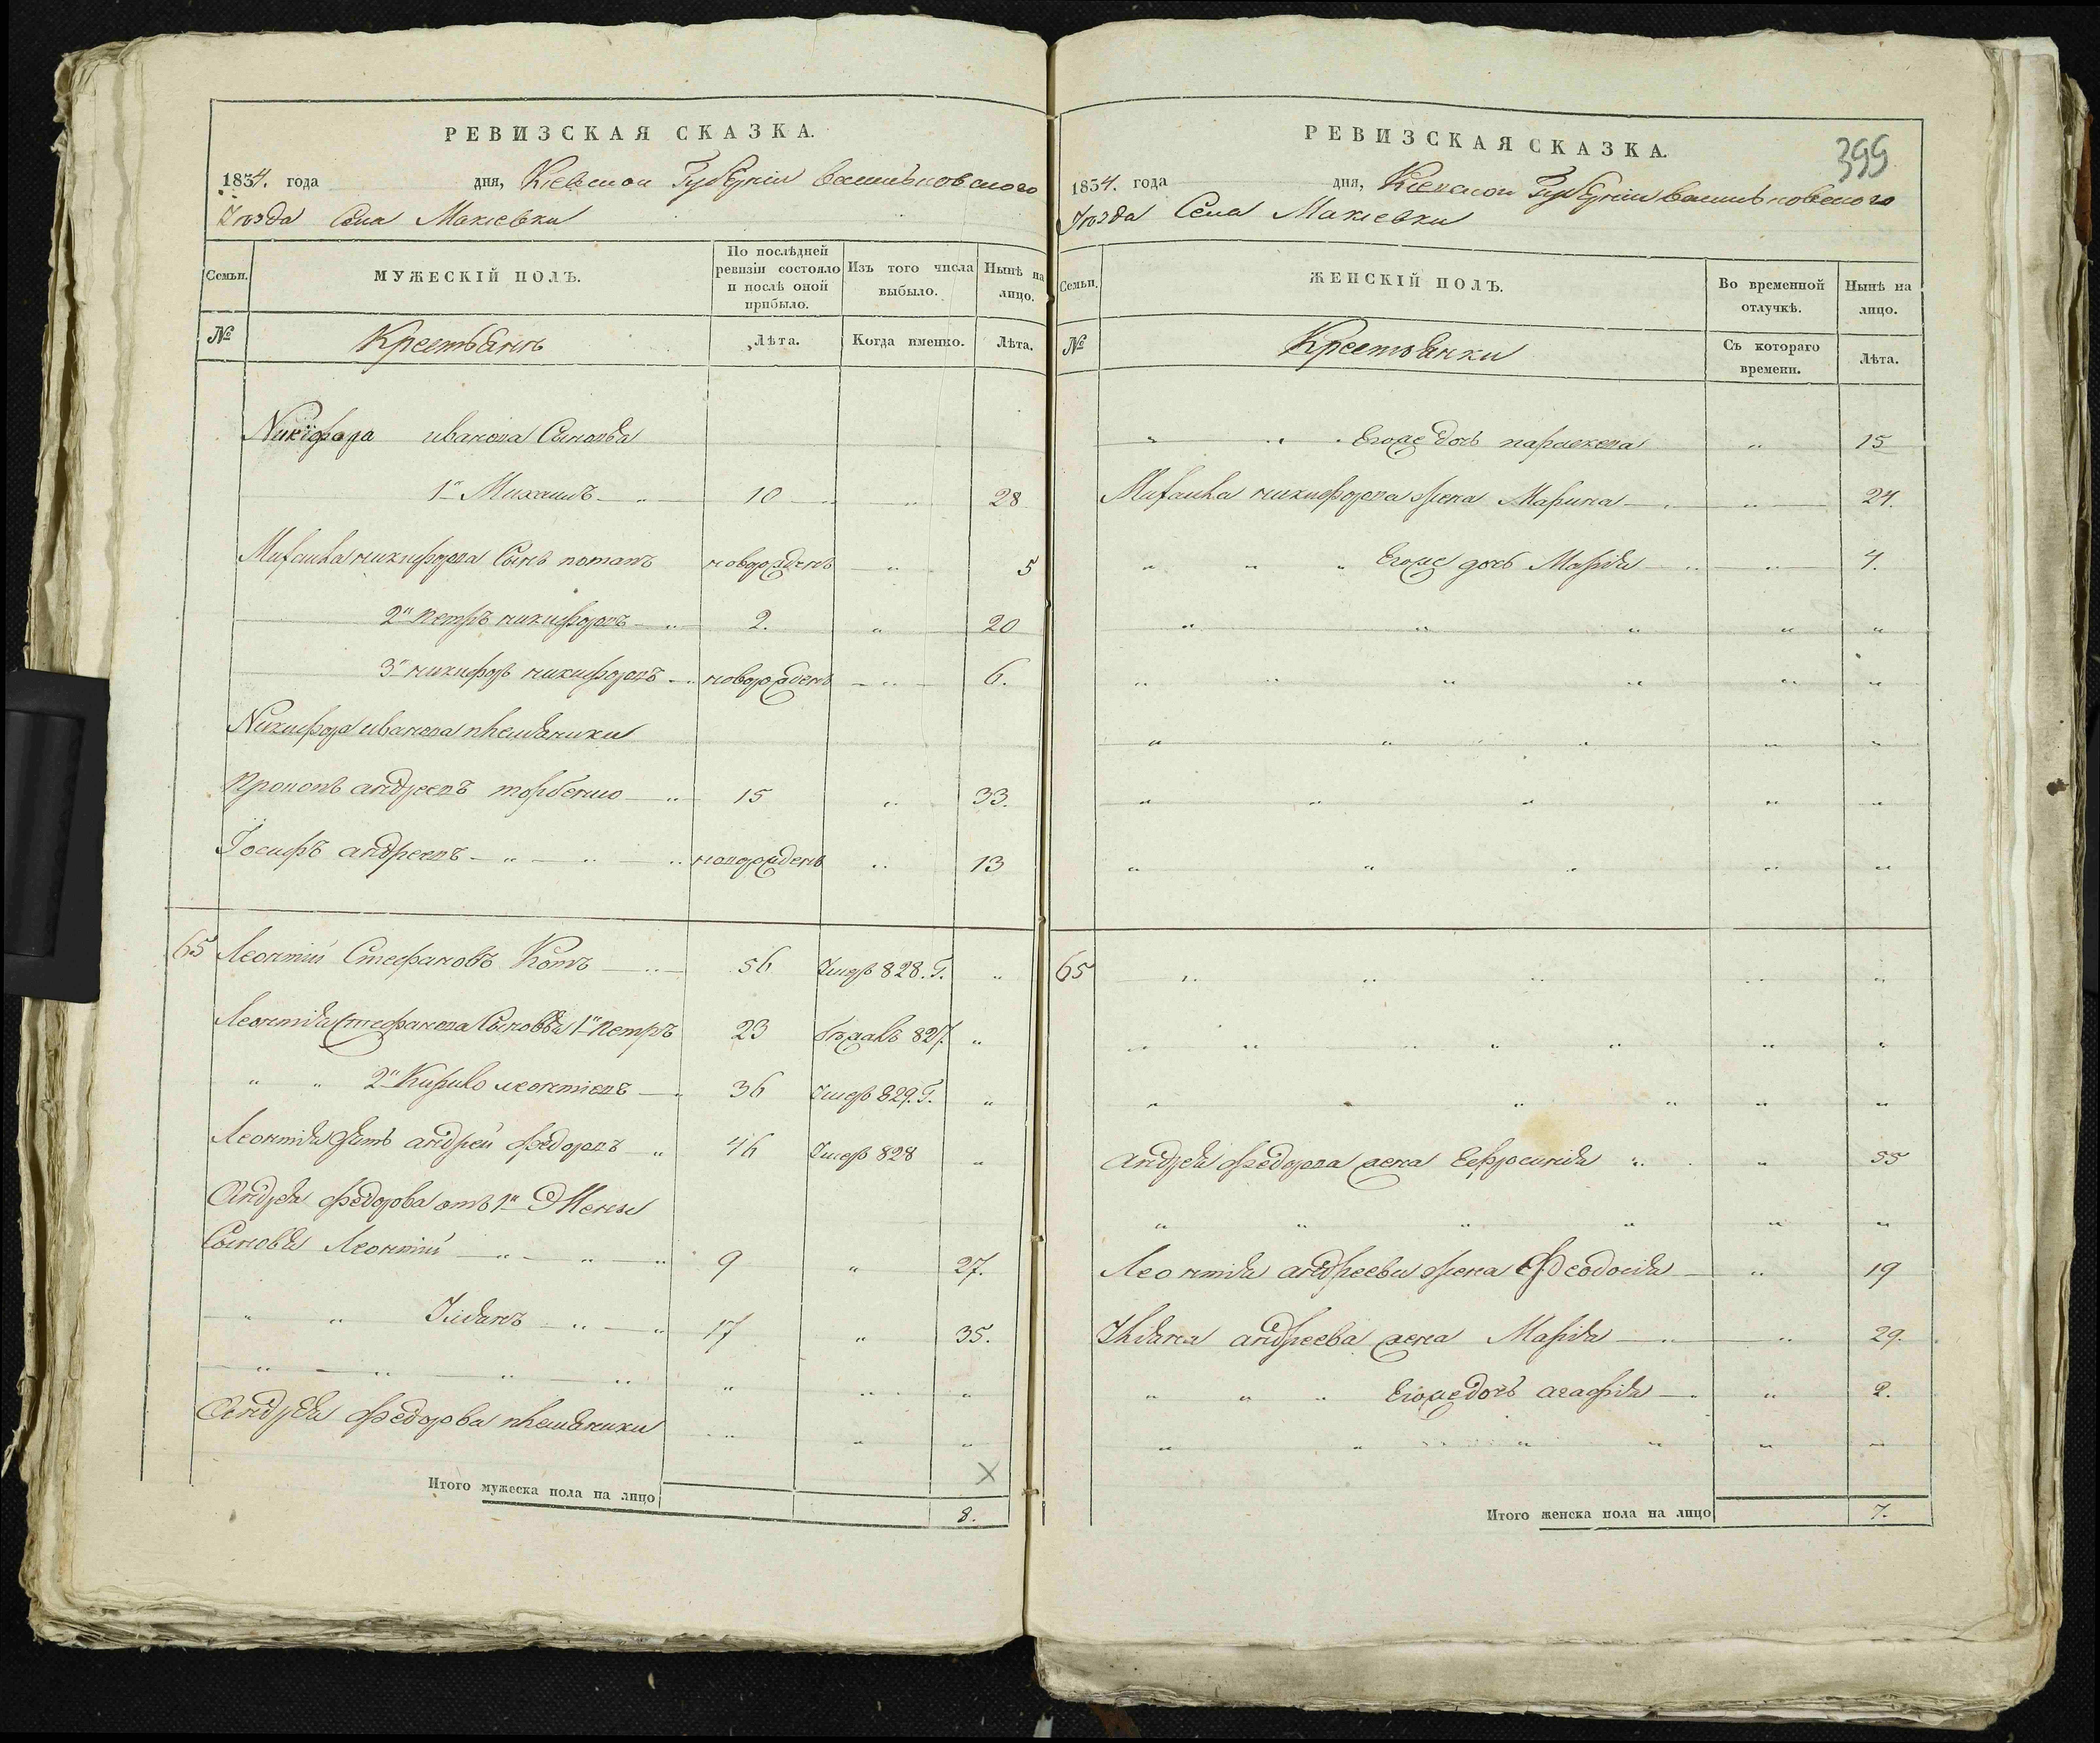 РЕВИЗСКАЯ СКАЗКА.
1834. года дня, Кіевской Губерніи Васильковского
Уѣзда Села Макіевки
Семьи. МУЖЕСКІЙ ПОЛЪ. По послѣдней ревизіи состояло и послѣ оной прибыло. Изъ того числа выбыло. Нынѣ на лицо.
№ Крестьянъ Лѣта. Когда именно. Лѣта.
Никифора иванова Сыновья
1й Михаилъ 10 " 28
Михаила никифорова Сынъ потапъ новорожденъ " 5
2й петръ никифоровъ 2. " 20
3й никифоръ никифоровъ новорожденъ " 6.
Никифора иванова племяники
Прокопъ андреевъ торбенко 15 " 33.
Іосифъ андреевъ новорожденъ " 13
65 Леонтій Стефановъ Котъ 56 Умеръ 828. Г. "
Леонтія Стефанова Сыновья 1й петръ 23 бѣжалъ 827. "
" " 2й Кирило леонтіевъ 36 Умеръ 829. Г. "
Леонтія зять андрей федоровъ 46 Умеръ 828 "
Андрея федорова отъ 1й Жены
Сыновья Леонтій 9 " 27.
" " Уліянъ 17 " 35.
" " " " " " "
Андрея федорова племяники " " "
Х
Итого мужеска пола на лицо 8.
РЕВИЗСКАЯ СКАЗКА.
399
1834. года дня, Кіевской Губерніи Васильковского
Уѣзда Села Макіевки
Семьи. ЖЕНСКІЙ ПОЛЪ. Во временной отлучкѣ. Нынѣ на лицо.
№ Крестьянки Съ котораго времени. Лѣта.
" " Егоже дочь параскева " 15
Михаила никифорова жена Марина " 24.
" " " Егоже дочь Марія " 4.
" " " " "
" " " " " "
" " " " "
" " " " "
" " " " "
65 " " " " "
" " " " " " "
" " " " " "
андрея федорова жена Ефросинія " 55
" " " " " "
Леонтія андреева жена Феодосія " 19
Уліяна андреева жена Марія " 29.
" " " Егоже дочь агафія " 2.
" " " " " "
Итого женска пола на лицо 7.